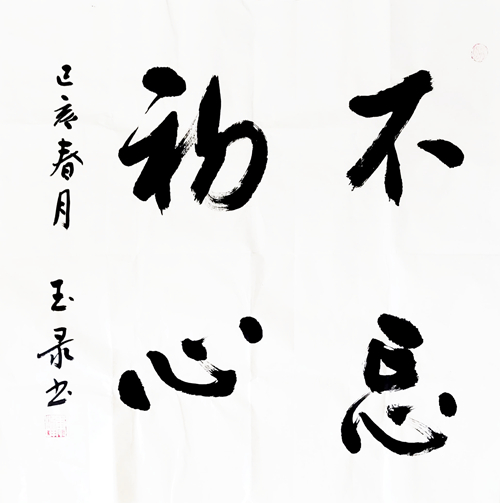 不忘
初心
己亥春月 玉录书